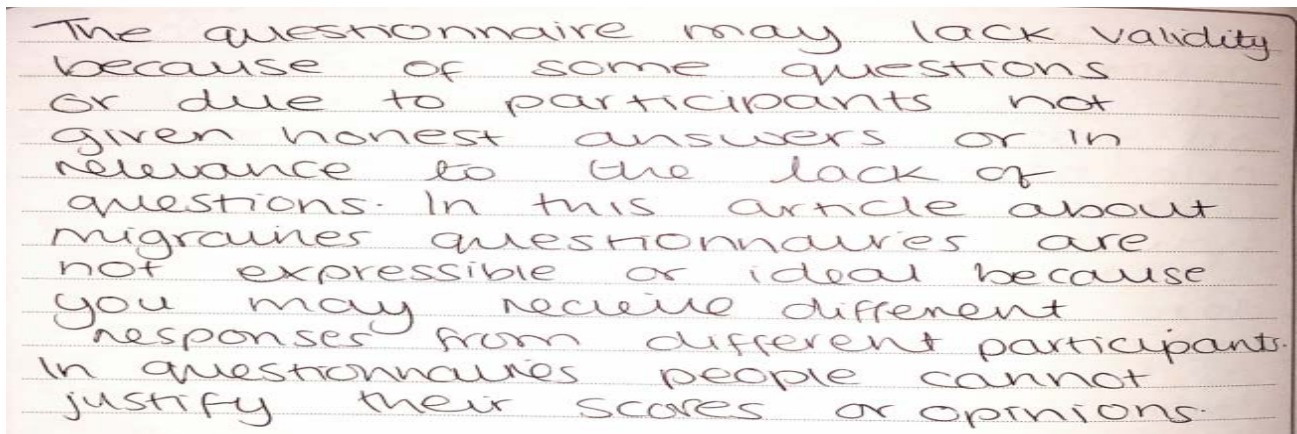 The questionnaire may lack validity
because of some questions
or due to participants not
given honest answers or in
relevance to the lack of
questions. In this article about
migraines questionnaires are
not expressible or ideal because
you may recieve different
responses from different participants.
In questionnaires people cannot
justify their scores or opinions.